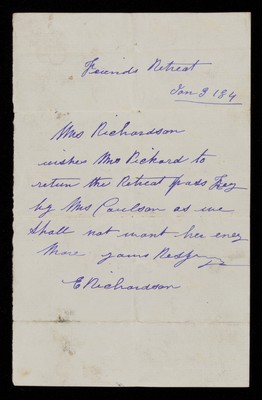 Friends Retreat
Jan 3 184
Mrs Richardson
wishes Mrs Rickard to
return the Retreat pass Key
by Mrs Coulson as we
shall not want her eney
More yours Respy
E Richardson